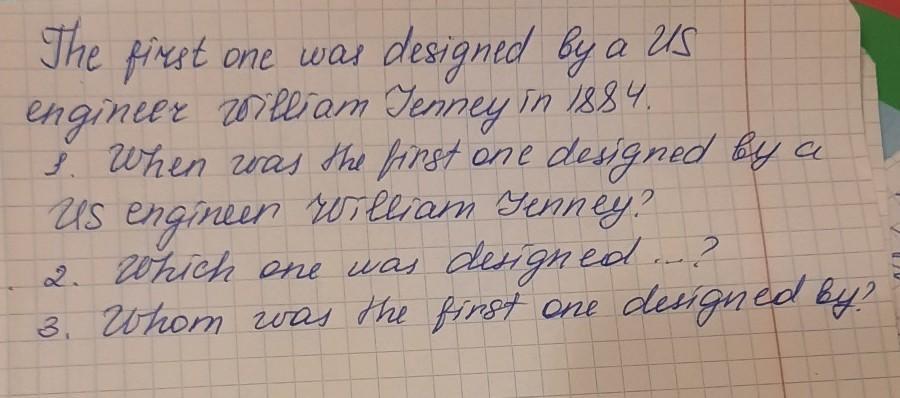 The first one was designed by a US
engineer William Jenney in 1884.
1. When was the first one designed by a
US engineer William Jenney?
2. Which one was designed ...?
3. Whom was the first one designed by?